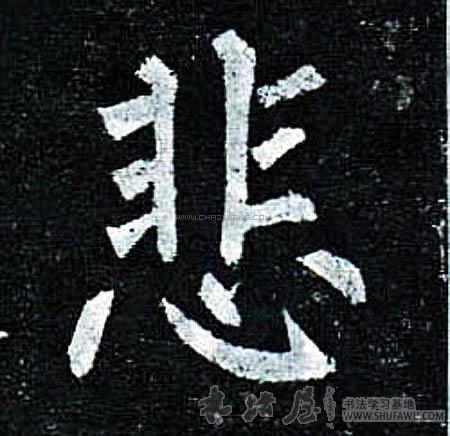 悲
WWW.CHAZIWANG.COM
书法学习基地
WWW.SHUFAWU.COM